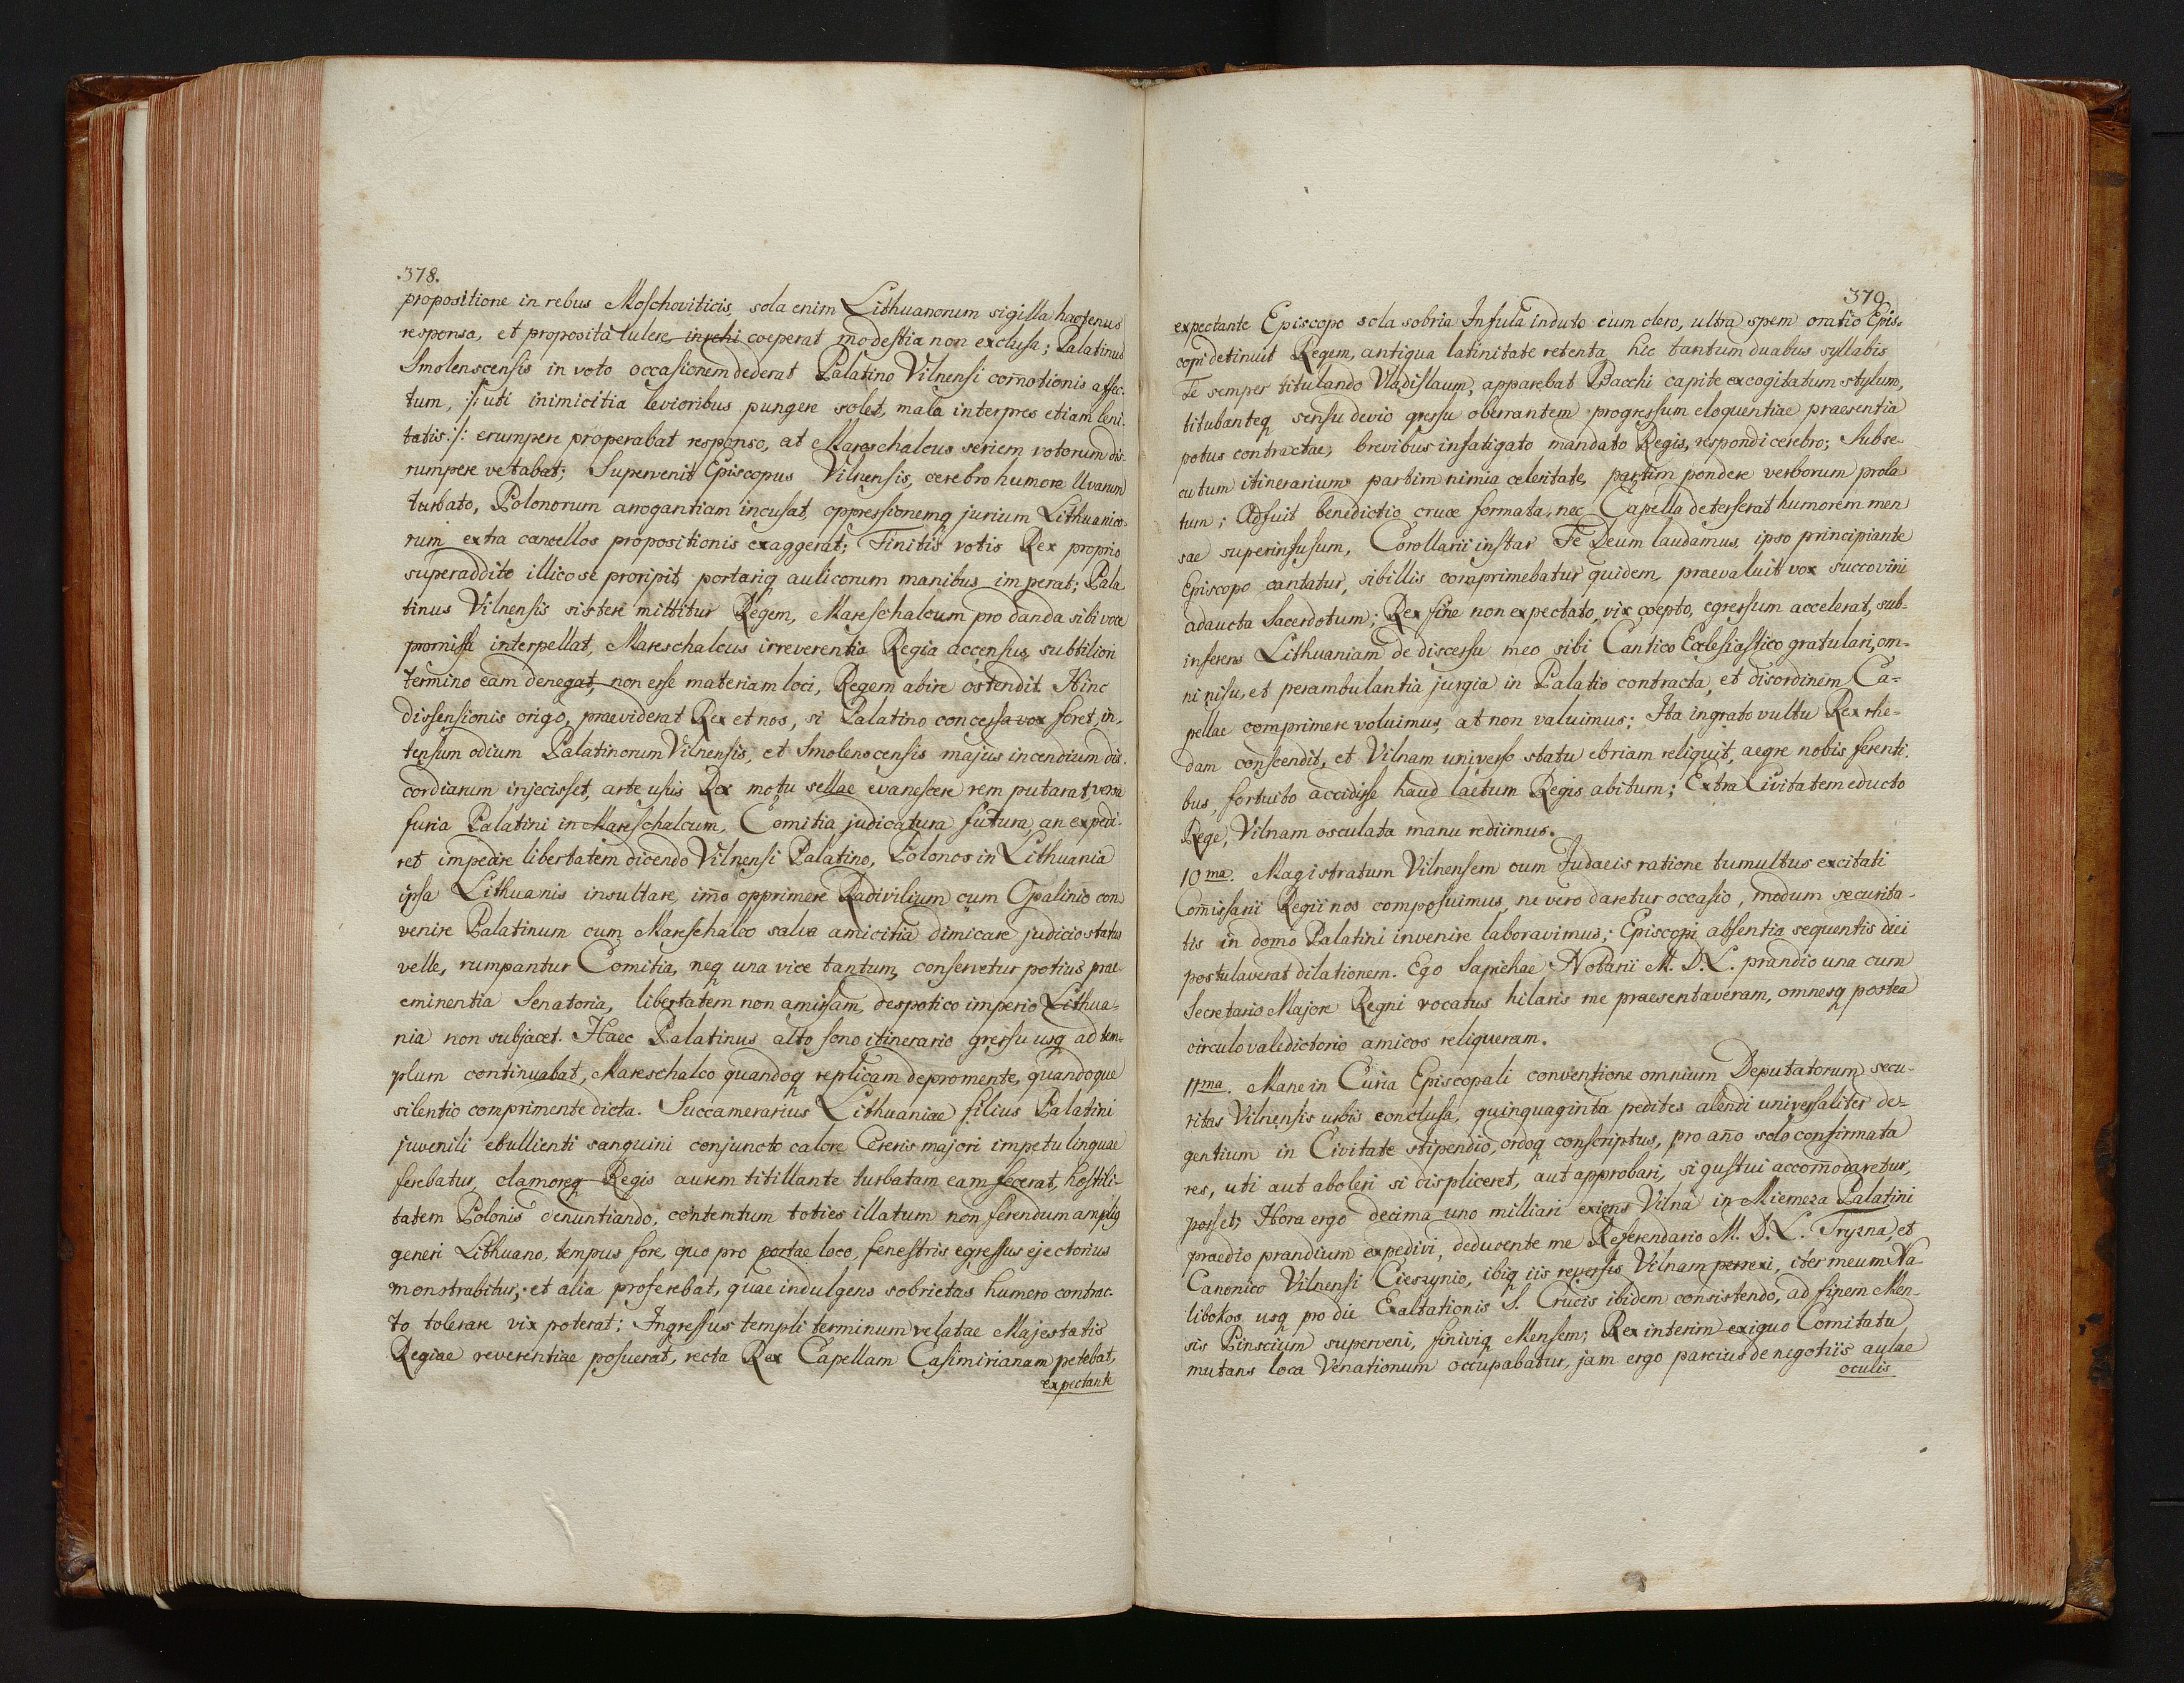 378.
propositione in rebus Moschoviticis, sola enim Lithuanorum sigilla hactenus
responsa, et proposita tulere, invehi coeperat modestia non exclusa; Palatinus
Smolenscensis in voto occasionem dederat Palatino Vilnensi com̄otionis affec-
tum, /: uti inimicitia levioribus pungere solet, mala interpres etiam leni-
tatis :/ erumpere properabat responso, at Mareschalcus seriem votorum dis-
rumpere vetabat; Supervenit Episcopus Vilnensis, cerebro humore Uvarum
turbato, Polonorum arrogantiam incusat, oppressionemq jurium Lithuanico-
rum extra cancellos propositionis exaggerat; Finitis votis Rex proprio
superaddito illico se proripit, portariq aulicorum manibus imperat; Pala
tinus Vilnensis sistere mittitur Regem, Mareschalcum pro danda sibi voce
promissa interpellat, Mareschalcus irreverentia Regia accensus, subtiliori
termino eam denegat, non esse materiam loci, Regem abire ostendit. Hinc
dissensionis origo, praeviderat Rex et nos, si Palatino concessa vox foret, in-
tensum odium Palatinorum Vilnensis, et Smolenscensis majus incendium dis-
cordiarum injecisset, arte usus Rex motu sellae evanescere rem putarat, versa
furia Palatini in Mareschalcum, Comitia judicatura futura, an expedi-
ret impedire libertatem dicendo Vilnensi Palatino, Polonos in Lithuania
ipsa Lithuanis insultare, im̄o opprimere Radivilium cum Opalinio con
venire Palatinum cum Mareschalco salva amicitia dimicare judicio status
velle, rumpantur Comitia, neq una vice tantum, conservetur potius prae-
eminentia Senatoria, libertatem non amissam, despotico imperio Lithua-
nia non subjacet. Haec Palatinus alto sono itinerario gressu usq ad tem-
plum continuabat, Mareschalco quandoq replicam depromente, quandoque
silentio comprimente dicta. Succamerarius Lithuaniae filius Palatini
juvenili ebullienti sanguini conjuncto calore Cereris majori impetu linguae
ferebatur, clamoreq Regis aurem titillante turbatam eam fecerat, hostili-
tatem Polonis denuntiando, contemtum toties illatum non ferendum amplig
generi Lithuano, tempus fore, quo pro portae loco, fenestris egressus ejectorius
monstrabitur; et alia proferebat, quae indulgens sobrietas humero contrac-
to tolerare vix poterat; Ingressus templi terminum velatae Majestatis
Regiae reverentiae posuerat, recta Rex Capellam Casimirianam petebat,
expectante
379
expectante Episcopo sola sobria Infula induto cum clero, ultra spem oratio Epis-
copi detinuit Regem, antiqua latinitate retenta, hic tantum duabus syllabis
Te semper titulando Vladislaum, apparebat Bacchi capite excogitatum stylum,
titubanteq sensu devio gressu oberrantem progressum eloquentiae praesentia
potus contractae, brevibus infatigato mandato Regis, respondi cerebro; Subse-
cutum itinerarium partim nimia celeritate, partim pondere verborum prola
tum; Adfuit benedictio cruce formata, nec Capella deterserat humorem men
sae superinfusum, Corollarii instar Te Deum laudamus, ipso principiante
Episcopo cantatur, sibillis comprimebatur quidem, praevaluit vox succo vini
adaucta Sacerdotum; Rex fine non expectato, vix coepto, egressum accelerat, sub-
inferens Lithuaniam de discessu meo sibi Cantico Ecclesiastico gratulari, om-
ni nisu, et perambulantia jurgia in Palatio contracta, et disordinem Ca-
pellae comprimere voluimus, at non valuimus; Ita ingrato vultu Rex rhe-
dam conscendit, et Vilnam universo statu ebriam reliquit, aegre nobis ferenti-
bus, fortuito accidisse haud laetum Regis abitum; Extra Civitatem educto
Rege, Vilnam osculata manu rediimus.
10ma. Magistratum Vilnensem cum Judaeis ratione tumultus excitati
Com̄issarii Regii nos composuimus, ne vero daretur occasio, modum securita-
tis in domo Palatini invenire laboravimus; Episcopi absentia sequentis diei
postulaverat dilationem. Ego Sapiehae Notarii M. D. L. prandio una cum
Secretario Majore Regni vocatus hilaris me praesentaveram, omnesq postea
circulo valedictorio amicos reliqueram.
11ma. Mane in Curia Episcopali conventione omnium Deputatorum secu-
ritas Vilnensis urbis conclusa, quinquaginta pedites alendi universaliter de-
gentium in Civitate stipendio, ordoq conscriptus, pro an̄o solo confirmata
res, uti aut aboleri si displiceret, aut approbari, si gustui accom̄odaretur,
posset; Hora ergo decima uno milliari exiens Vilna in Miemeza Palatini
praedio prandium expedivi, deducente me Referendario M. D. L. Tryzna, et
Canonico Vilnensi Cieszynio, ibiq iis reversis Vilnam perrexi, iter meum Na
libokos usq pro die Exaltationis S. Crucis ibidem consistendo, ad finem Men-
sis Pinscium superveni, finiviq Mensem; Rex interim exiguo Comitatu
mutans loca Venationum occupabatur, jam ergo parcius de negotiis aulae
oculis